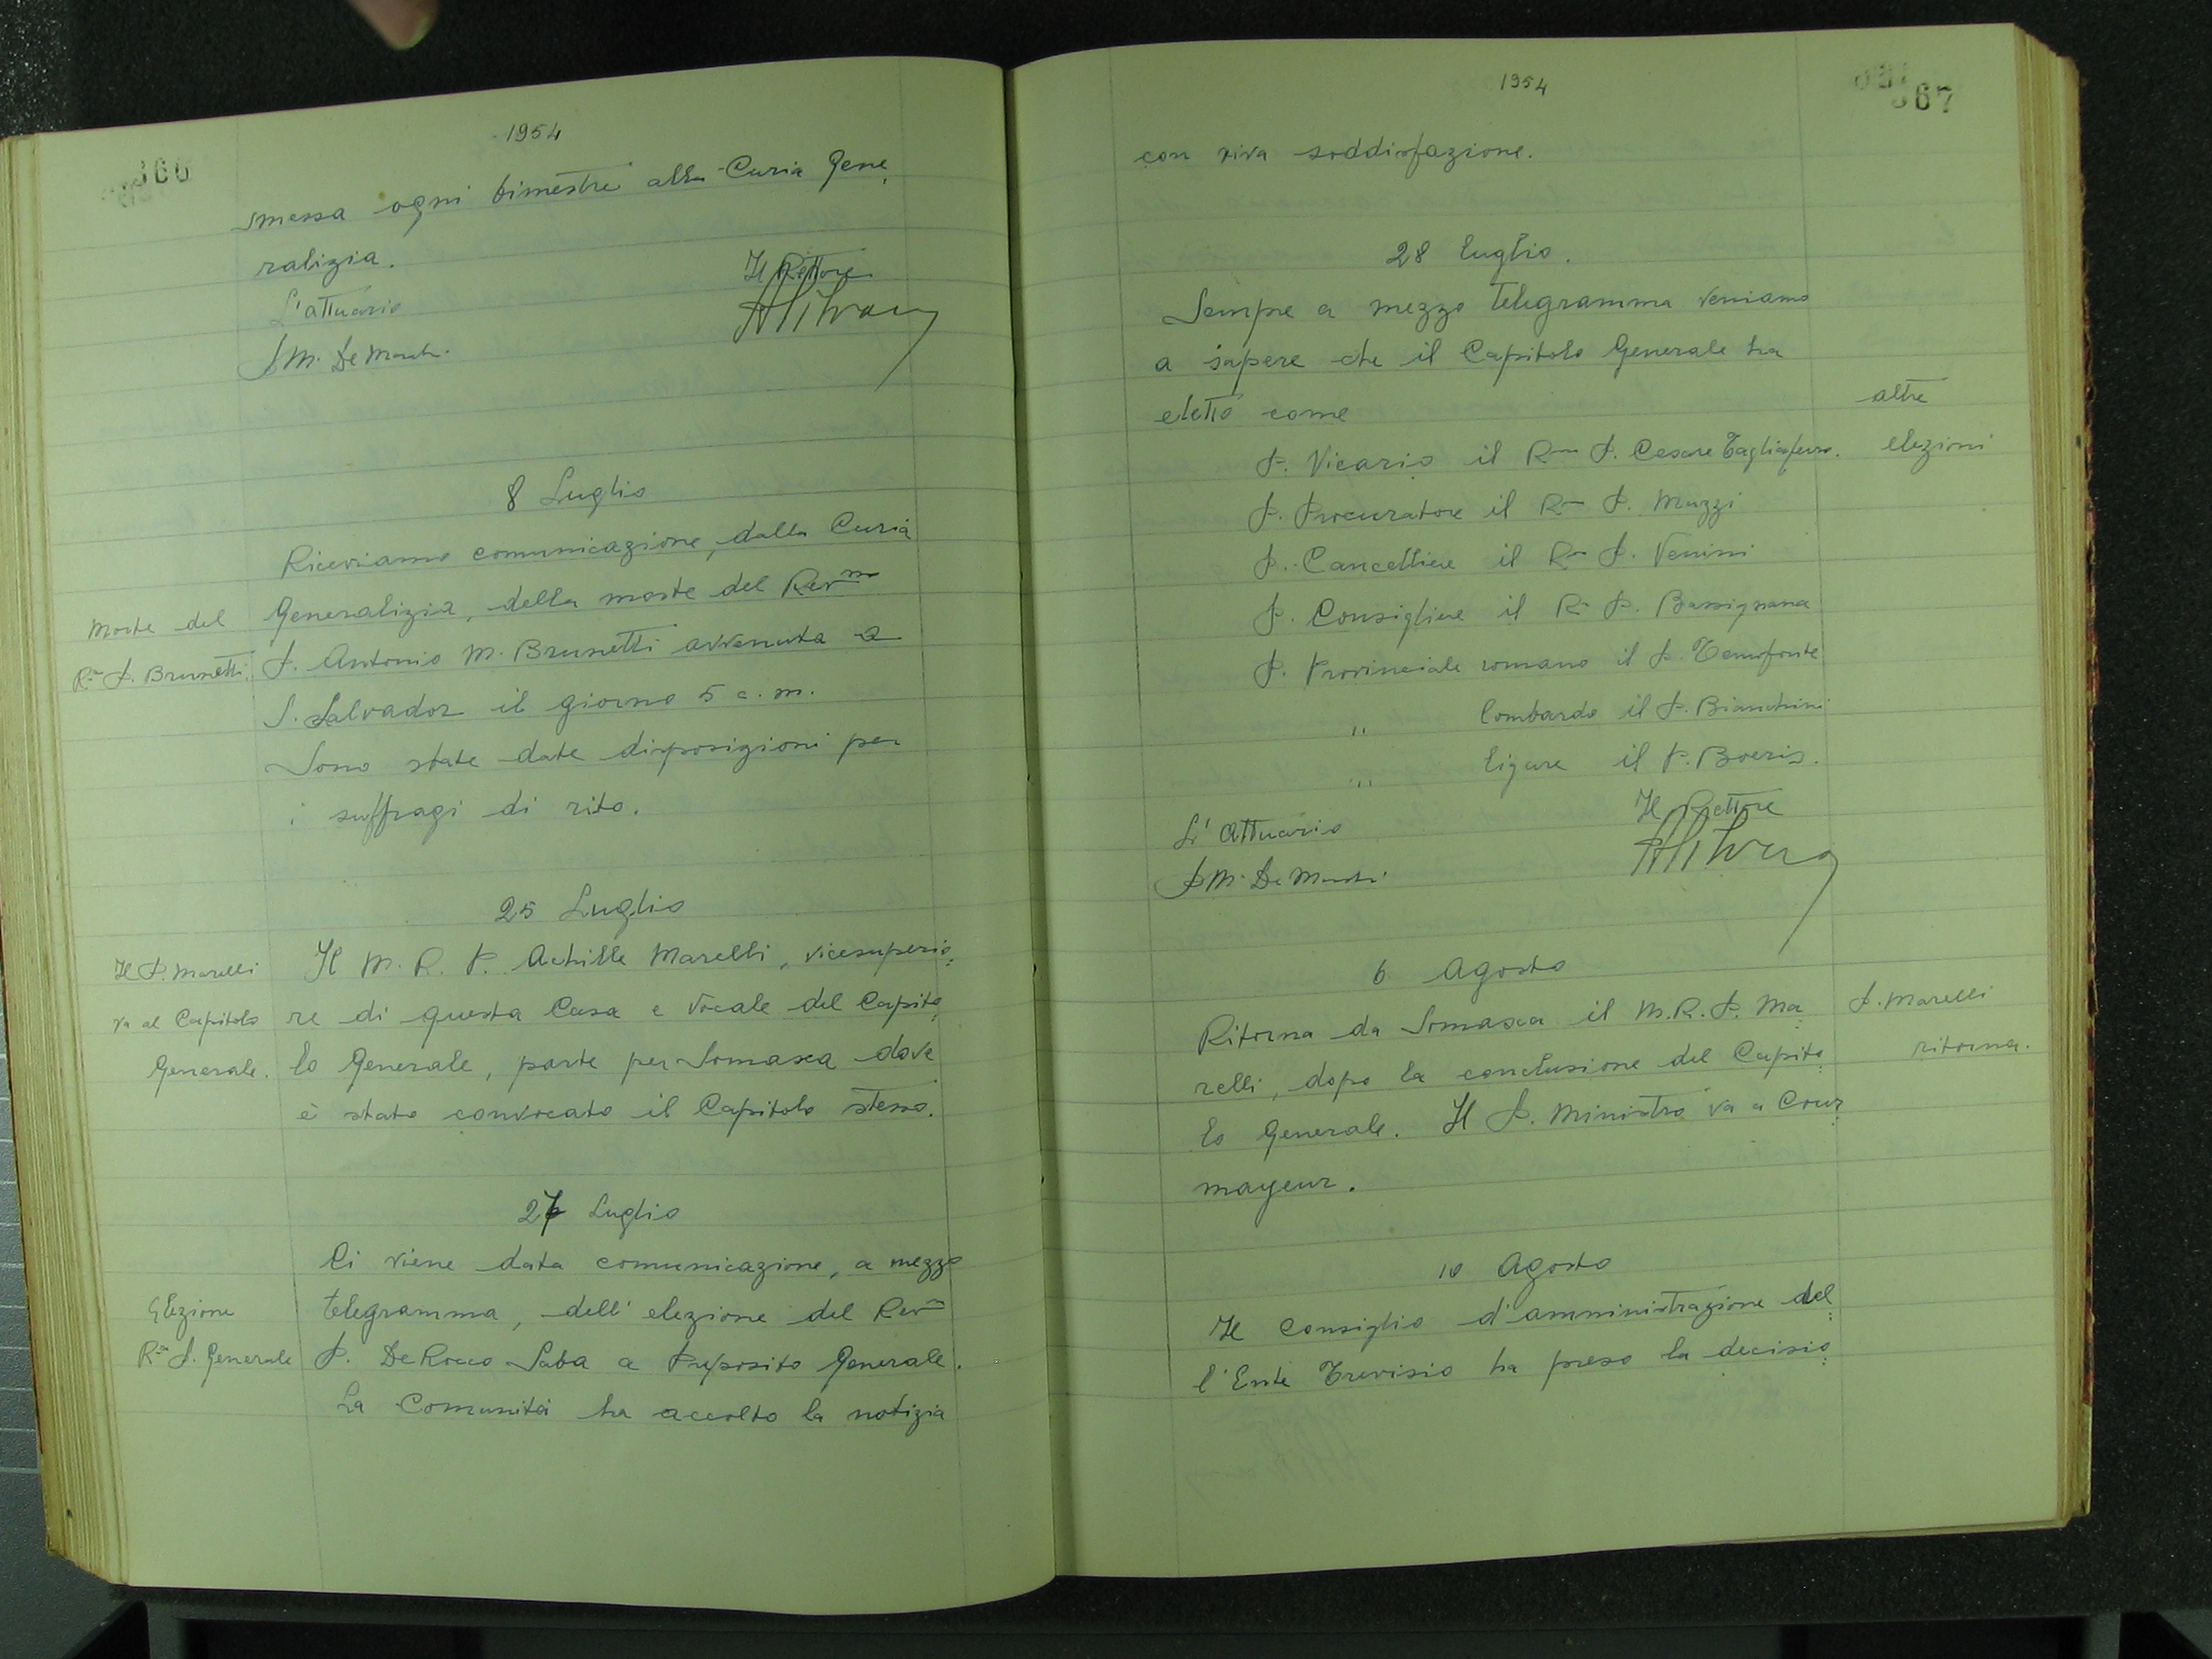 1954
smessa ogni bimestre alla Curia Gene
ralizia.
L'attuario
Il Rettore
P. M. De Marchi
8 Luglio
Riceviamo comunicazione, dalla Curia
Morte del
Generalizia, della morte del Rev.mo
R.mo P. Brunetti.
P. Antonio M. Brunetti avvenuta a
S. Salvador il giorno 5 c. m.
Sono state date disposizioni per
i suffragi di rito.
25 Luglio
Il P. Marelli
Il M. R. P. Achille Marelli, vicesuperio
va al Capitolo
re di questa Casa e Vocale del Capito
Generale.
lo Generale, parte per Somasca dove
è stato convocato il Capitolo stesso.
27 Luglio
Ci viene data comunicazione, a mezzo
Elezione
telegramma, dell'elezione del Rev.mo
R.mo P. Generale
P. De Rocco Saba a Preposito Generale.
La Comunità ha accolto la notizia
1954
367
con viva soddisfazione.
28 luglio.
Sempre a mezzo telegramma veniamo
a sapere che il Capitolo Generale ha
altre
eletto come
elezioni
P. Vicario il R.mo P. Cesare Tagliaferro.
P. Procuratore il R.mo P. Muzzi
P. Cancelliere il R.mo P. Venini
P. Consigliere il R. P. Bassignana
P. Provinciale romano il P. Temofonte
" lombardo il P. Bianchini
" ligure il P. Boeris.
L'Attuario
Il Rettore
P. M. De Marchi
6 Agosto
Ritorna da Somasca il M. R. P. Ma
P. Marelli
relli, dopo la conclusione del Capito
ritorna.
lo Generale. Il P. Ministro va a Cour
mayeur.
10 Agosto
Il Consiglio d'amministrazione del
l'Ente Trevisio ha preso la decisio